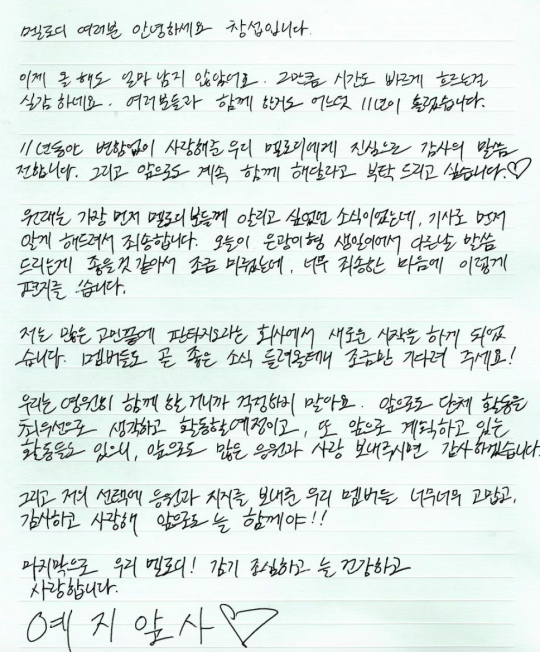 멜로디 여러분 안녕하세요 창섭입니다.
이제 올 해도 얼마 남지 않았어요. 그만큼 시간도 빠르게 흐르는걸
실감 하네요. 여러분들과 함께 한거도 어느덧 11년이 흘렀습니다.
11년동안 변함없이 사랑해준 우리 멜로디에게 진심으로 감사의 말씀
전합니다. 그리고 앞으로도 계속 함께 해달라고 부탁 드리고 싶습니다.♡
원래는 가장 먼저 멜로디 분들께 알리고 싶었던 소식이었는데, 기사로 먼저
알게 해드려서 죄송합니다. 오늘이 은광이형 생일이어서 다른날 말씀
드리는게 좋을것 같아서 조금 미뤘는데, 너무 죄송한 마음에 이렇게
편지를 씁니다.
저는 많은 고민끝에 판타지오라는 회사에서 새로운 시작을 하게 되었
습니다. 멤버들도 곧 좋은 소식 들려올테니 조금만 기다려 주세요!
우리는 영원히 함께 할 거니까 걱정하지 말아요. 앞으로도 단체 활동을
최우선으로 생각하고 활동할예정이고, 또 앞으로 계획하고 있는
활동들도 있으니, 앞으로도 많은 응원과 사랑 보내주시면 감사하겠습니다.
그리고 저의 선택에 응원과 지지를 보내준 우리 멤버들 너무너무 고맙고,
감사하고 사랑해 앞으로도 늘 함께야!!
마지막으로 우리 멜로디! 감기 조심하고 늘 건강하고
사랑합니다.
예지앞사♡